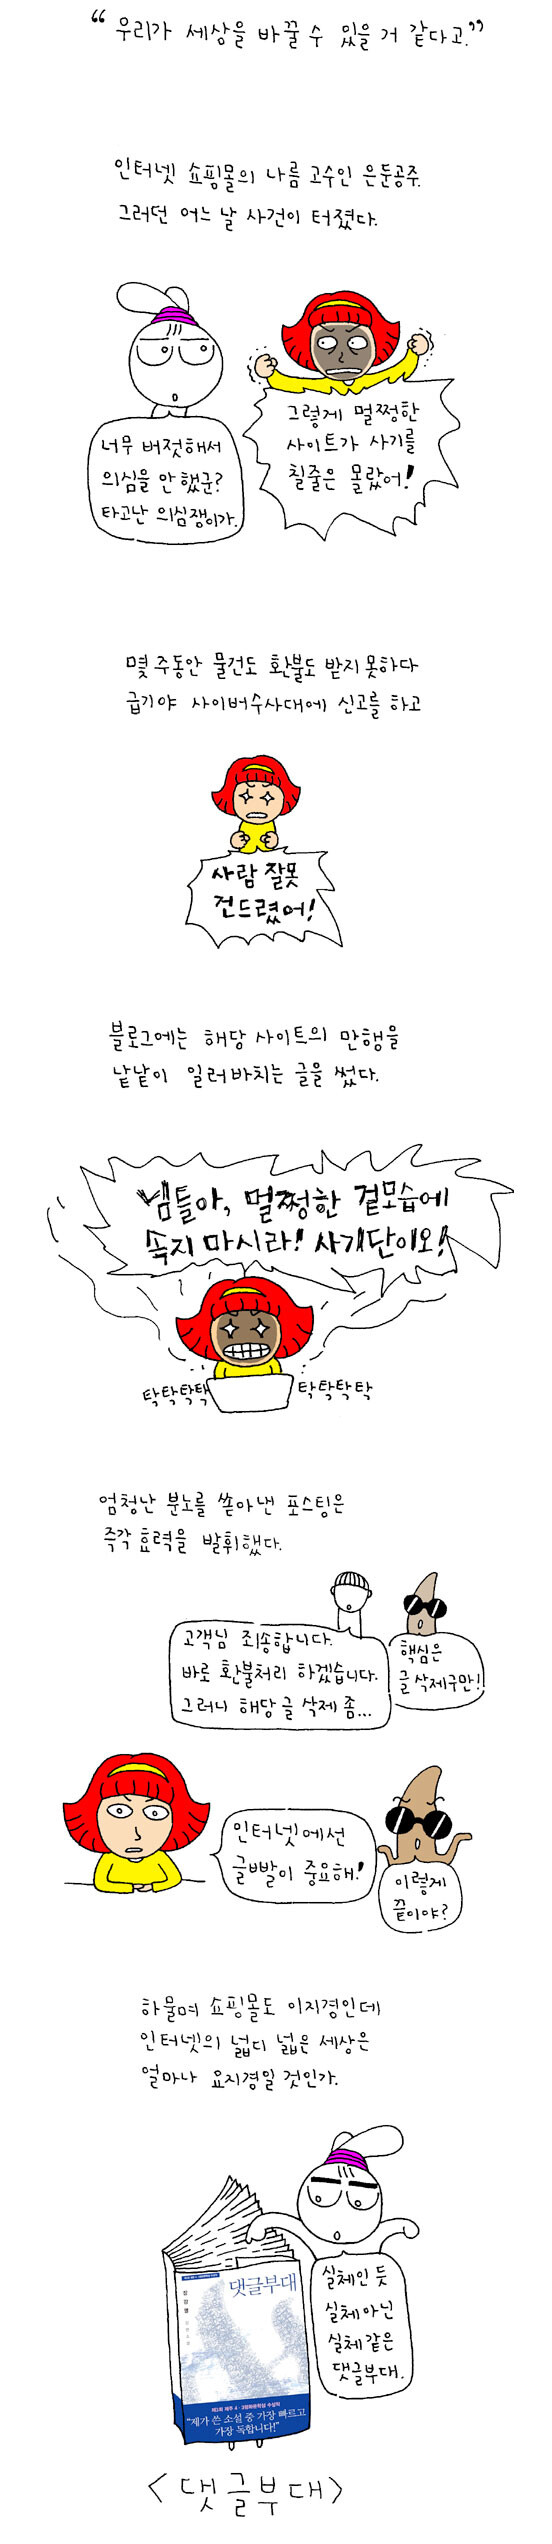 “우리가 세상을 바꿀 수 있을 거 같다고.”
인터넷 쇼핑몰의 나름 고수인 은둔공주.
그러던 어느 날 사건이 터졌다.
너무 버젓해서
의심을 안 했군?
타고난 의심쟁이가.
그렇게 멀쩡한
사이트가 사기를
칠줄은 몰랐어!
몇 주동안 물건도 환불도 받지 못하다
급기야 사이버수사대에 신고를 하고
사람 잘못
건드렸어!
블로그에는 해당 사이트의 만행을
낱낱이 일러바치는 글을 썼다.
넴들아, 멀쩡한 겉모습에
속지 마시라! 사기단이오!
탁탁탁탁
탁탁탁탁
엄청난 분노를 쏟아낸 포스팅은
즉각 효력을 발휘했다.
고객님 죄송합니다.
바로 환불처리 하겠습니다.
그러니 해당 글 삭제 좀...
핵심은
글 삭제구만!
인터넷에선
글빨이 중요해!
이렇게
끝이야?
하물며 쇼핑몰도 이지경인데
인터넷의 넓디 넓은 세상은
얼마나 요지경일 것인가.
실체인 듯
실체 아닌
실체 같은
댓글부대.
댓글부대
장강명
장편소설
제3회 제주 4·3평화문학상 수상작
“제가 쓴 소설 중 가장 빠르고
가장 독합니다!”
<댓글부대>